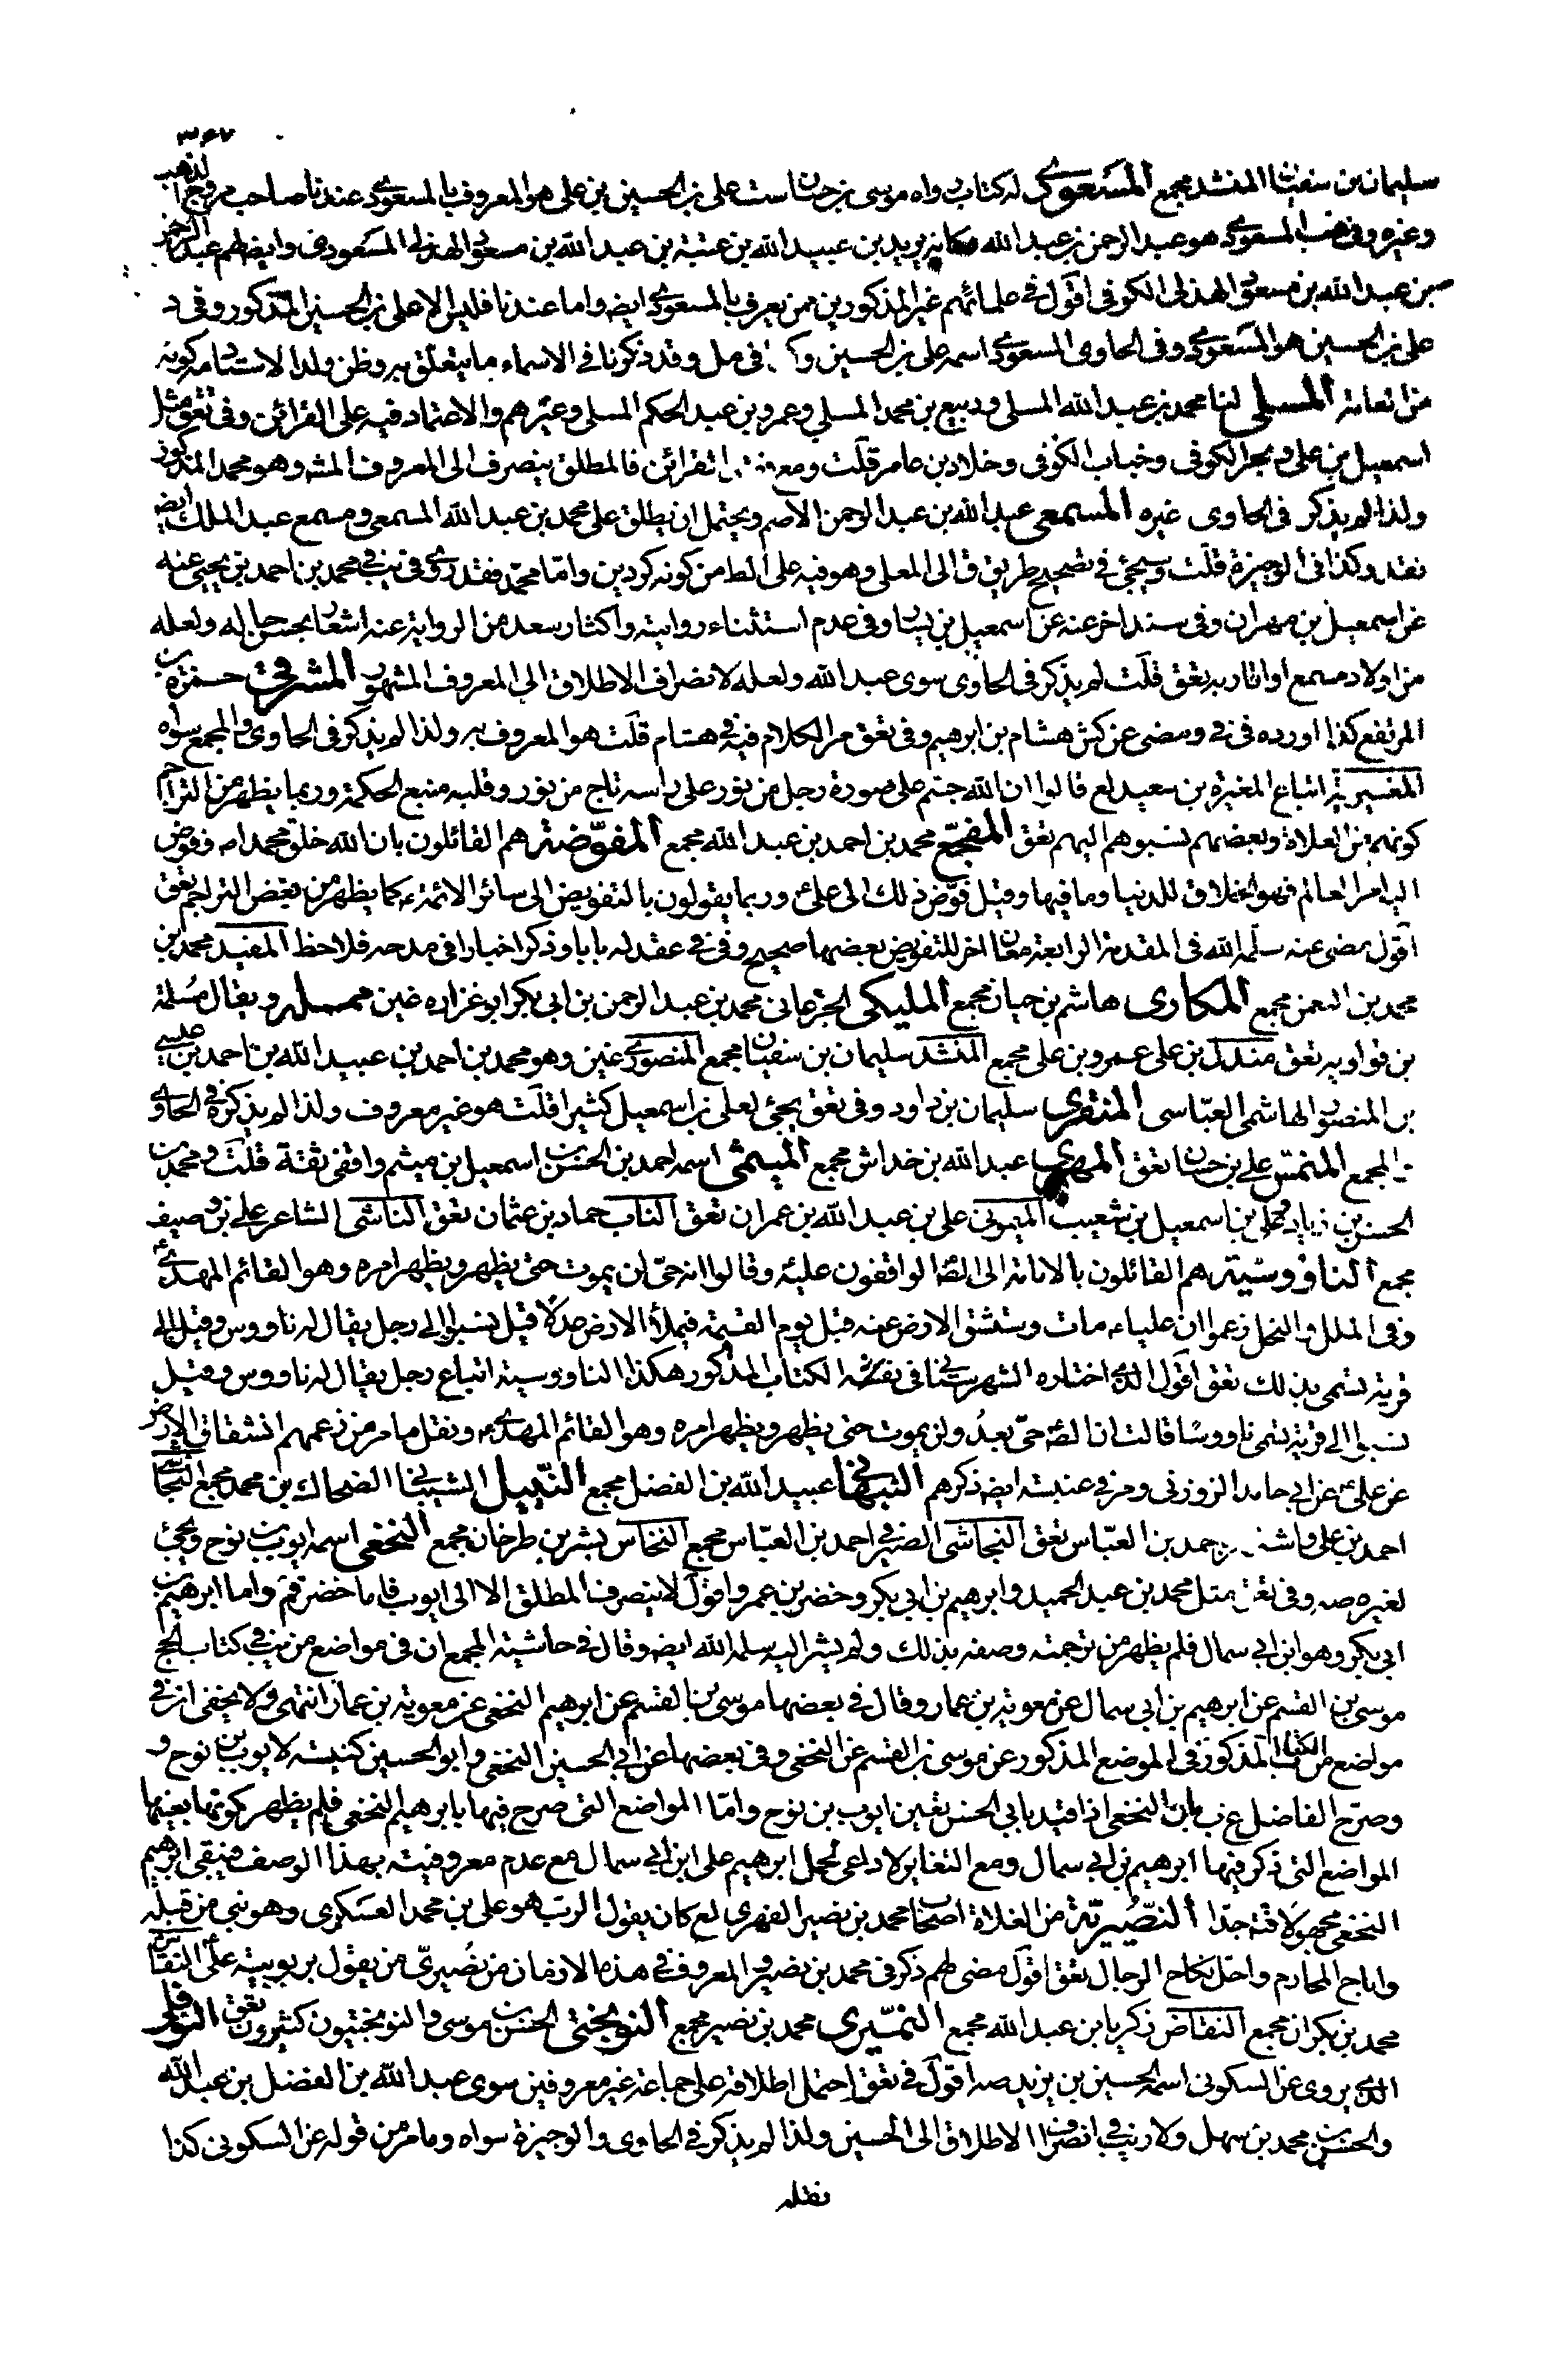 ٣٦٧
سليمان بن سفيان المنشد مجمع المسعودى له كتاب رواه موسى بن حسان ست على بن الحسين بن على هو المعروف بالمسعودى عندنا صاحب مروج الذهب
وغيره وفى هب المسعودى هو عبد الرحمن بن عبد الله بن عتبة بن عبد الله بن مسعود الهذلى المسعودى وايضا لهم عبد الرحمن
بن عبد الله بن مسعود الهذلى الكوفى اقول فى علمائهم غير المذكورين من يعرف بالمسعودى ايضه واما عندنا فليس الا على بن الحسين المذكور وفى د
على بن الحسين هو المسعودى وفى الحاوى المسعودى اسمه على بن الحسين فى مل وقد ذكرنا فى الاسماء ما يتعلق به وظن ولد الاستاد مه كونه
من العامة المسلى لنا محمد بن عبد الله المسلى وربيع بن محمد المسلى وعمرو بن عبد الحكم المسلى وغيرهم والاعتماد فيه على القرائن وفى تعق مثل
اسمعيل بن على وبحر الكوفى وخباب الكوفى وخلاد بن عامر قلت ومع القرائن فالمطلق ينصرف الى المعروف المشه وهو محمد المذكور
ولذا لم يذكر فى الحاوى غيره المسمعى عبد الله بن عبد الرحمن الاصم ويحتمل ان يطلق على محمد بن عبد الله المسمعى ومسمع عبد الملك ايضه
نقد وكذا فى الوجيزة قلت وسيجئ فى تصحيح طريق ق الى المعلى وهو فيه على الظ من كونه كردين واما محمد فقد روى فى يب فى محمد بن احمد بن يحيى عنه
عن اسمعيل بن مهران وفى سند اخر عنه عن اسمعيل بن يسار وفى عدم استثناء روايته واكثار سعد من الرواية عنه اشعار بحسن حاله ولعله
من اولاد مسمع او اقاربه تعق قلت لم يذكر فى الحاوى سوى عبد الله ولعله لانصراف الاطلاق الى المعروف المشهور المشرقى حمزة بن
المرتفع كذا اورده فى فى ومضى عن كش هشام بن ابرهيم وفى تعق مر الكلام فيه فى هشام قلت هو المعروف به ولذا لم يذكر فى الحاوى والمجمع سواه
المغيرية اتباع المغيرة بن سعيد لع قالوا ان الله جسم على صورة رجل من نور على راسه تاج من نور وقلبه منبع الحكمة وربما يظهر من التراجم
كونهم من الغلاة وبعضهم نسبوهم اليهم تعق المفجع محمد بن احمد بن عبد الله مجمع المفوضة هم القائلون بان الله خلق محمدا ص وفوض
اليه امر العالم فهو الخلاق للدنيا وما فيها وقيل فوض ذلك الى على ع وربما يقولون بالتفويض الى سائر الائمة ع كما يظهر من بعض التراجم تعق
اقول مضى عنه سلمه الله فى المقدمة الرابعة معان اخر للتفويض بعضها صحيح وفى فى عقد له بابا وذكر اخبارا فى مدحه فلاحظ المفيد محمد بن
محمد بن النعمن مجمع المكارى هاشم بن حيان مجمع المليكى الجزعانى محمد بن عبد الرحمن بن ابى بكر ابو غزاره غين ممله ويقال مسلمة
تعق مندل بن على عمرو بن على مجمع المنشد سليمان بن سفيان مجمع المنصورى غين وهو محمد بن احمد بن عبيد الله بن احمد بن عيسى
بن المنصور الهاشمى العباسى المنقرى سليمان بن داود وفى تعق يجئ لعلى بن اسمعيل كثيرا قلت هو غير معروف ولذا لم يذكره فى الحاوى
والمجمع المنمس على بن حسان تعق المهرى عبد الله بن خداش مجمع الميثمى اسمه احمد بن الحسن بن اسمعيل بن ميثم واقفى ثقة قلت ومحمد بن
الحسن بن زياد ومحمد بن اسمعيل بن شعيب الميمونى على بن عبد الله بن عمران تعق الناب حماد بن عثمان تعق الناشى الشاعر على بن وصيف
مجمع الناووسية هم القائلون بالامامة الى الصه الواقفون عليه وقالوا انه حى لن يموت حتى يظهر ويظهر امره وهو القائم المهدى
وفى الملل والنحل زعموا ان عليا ع مات وستنشق الارض عنه قبل يوم القيمة فيملأ الارض عدلا قيل نسبوا الى رجل يقال له ناووس وقيل الى
قرية تسمى بذلك تعق اقول الذى اختاره الشهرستانى فى نفس الكتاب المذكور هكذا الناووسية اتباع رجل يقال له ناووس وقيل
نسبوا الى قرية تسمى ناووسا قالت ان الصه حى بعد ولن يموت حتى يظهر ويظهر امره وهو القائم المهدى ع ونقل ما مر من زعمهم انشقاق الارض
عن على ع عن ابى حامد الزوزنى ومر فى عنبسة ايضه ذكرهم النبهانى عبيد الله بن الفضل مجمع النبيل الشيبانى الضحاك بن محمد مجمع النجاشى
احمد بن على احمد بن العباس تعق النجاشى الصيرفى احمد بن العباس مجمع النخاس بشر بن طرخان مجمع النخعى اسمه ايوب بن نوح ويجئ
لغيره صه وفى تعق مثل محمد بن عبد الحميد وابرهيم بن ابى بكر وخضر بن عمرو اقول لا ينصرف المطلق الا الى ايوب فاما خضر فم واما ابرهيم بن
ابى بكر وهو ابن ابى سمال فلم يظهر من ترجمته وصفه بذلك ولم يشر اليه سلمه الله ايضه وقال فى حاشية المجمع ان فى مواضع من يب فى كتاب الحج
موسى بن القسم عن ابرهيم بن ابى سمال عن معوية بن عمار وقال فى بعضها موسى بن القسم عن ابرهيم النخعى عن معوية بن عمار انتهى ولا يخفى ان فى
مواضع من الكتاب المذكور فى الموضع المذكور عن موسى بن القسم عن النخعى وفى بعضها عن ابى الحسين النخعى وابو الحسين كنيته لايوب بن نوح و
وصرح الفاضل ع ب بان النخعى اذا قيد بابى الحسن تعين ايوب بن نوح واما المواضع التى صرح فيها بابرهيم النخعى فلم يظهر كونها بعينها
المواضع التى ذكر فيها ابرهيم بن ابى سمال ومع التغاير لا داعى لحمل ابرهيم على ابن ابى سمال مع عدم معروفيته بهذا الوصف فيبقى ابرهيم
النخعى مجهولا فتد جدا النصيرية من الغلاة اصحاب محمد بن نصير الفهرى لع كان يقول الرب هو على بن محمد العسكرى وهو نبى من قبله
واباح المحارم واحل نكاح الرجال تعق اقول مضى لهم ذكر فى محمد بن نصير والمعروف فى هذه الازمان من نصيرى من يقول بربوبية على ع النقاش
محمد بن بكران مجمع النقاض زكريا ابن عبد الله مجمع النميرى محمد بن نصير مجمع النوبختى الحسن بن موسى والنوبختيون كثيرون تعق النوفلى
الذى يروى عن السكونى اسمه الحسين بن يزيد صه اقول فى تعق احتمل اطلاقه على جماعة غير معروفين سوى عبد الله بن الفضل بن عبد الله
والحسن بن محمد بن سهل ولا ريب فى انصراف الاطلاق الى الحسين ولذا لم يذكر فى الحاوى والوجيزة سواه وما مر من قوله عن السكونى كذا
نقله